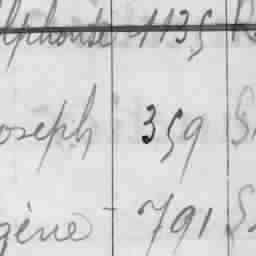 lphonse 1135 R
oseph 359 S
gène 791 S